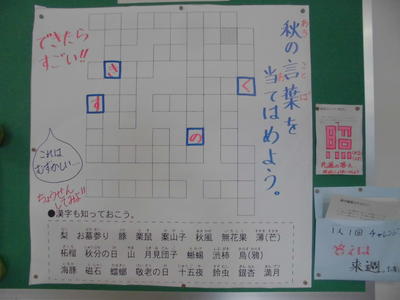 秋の言葉を
当てはめよう。
あき
ことば
あ
できたら
すごい!!
き
く
す
の
これは
むずかしい…
ちょうせん
してみよ!!
●漢字も知っておこう。
梨 お墓参り 豚 栗鼠 案山子 秋風 無花果 薄(芒)
柘榴 秋分の日 山 月見団子 蜥蜴 渋柿 烏(鴉)
海豚 磁石 蟷螂 敬老の日 十五夜 鈴虫 銀杏 満月
先週の答え
1人1回
答えは
来週